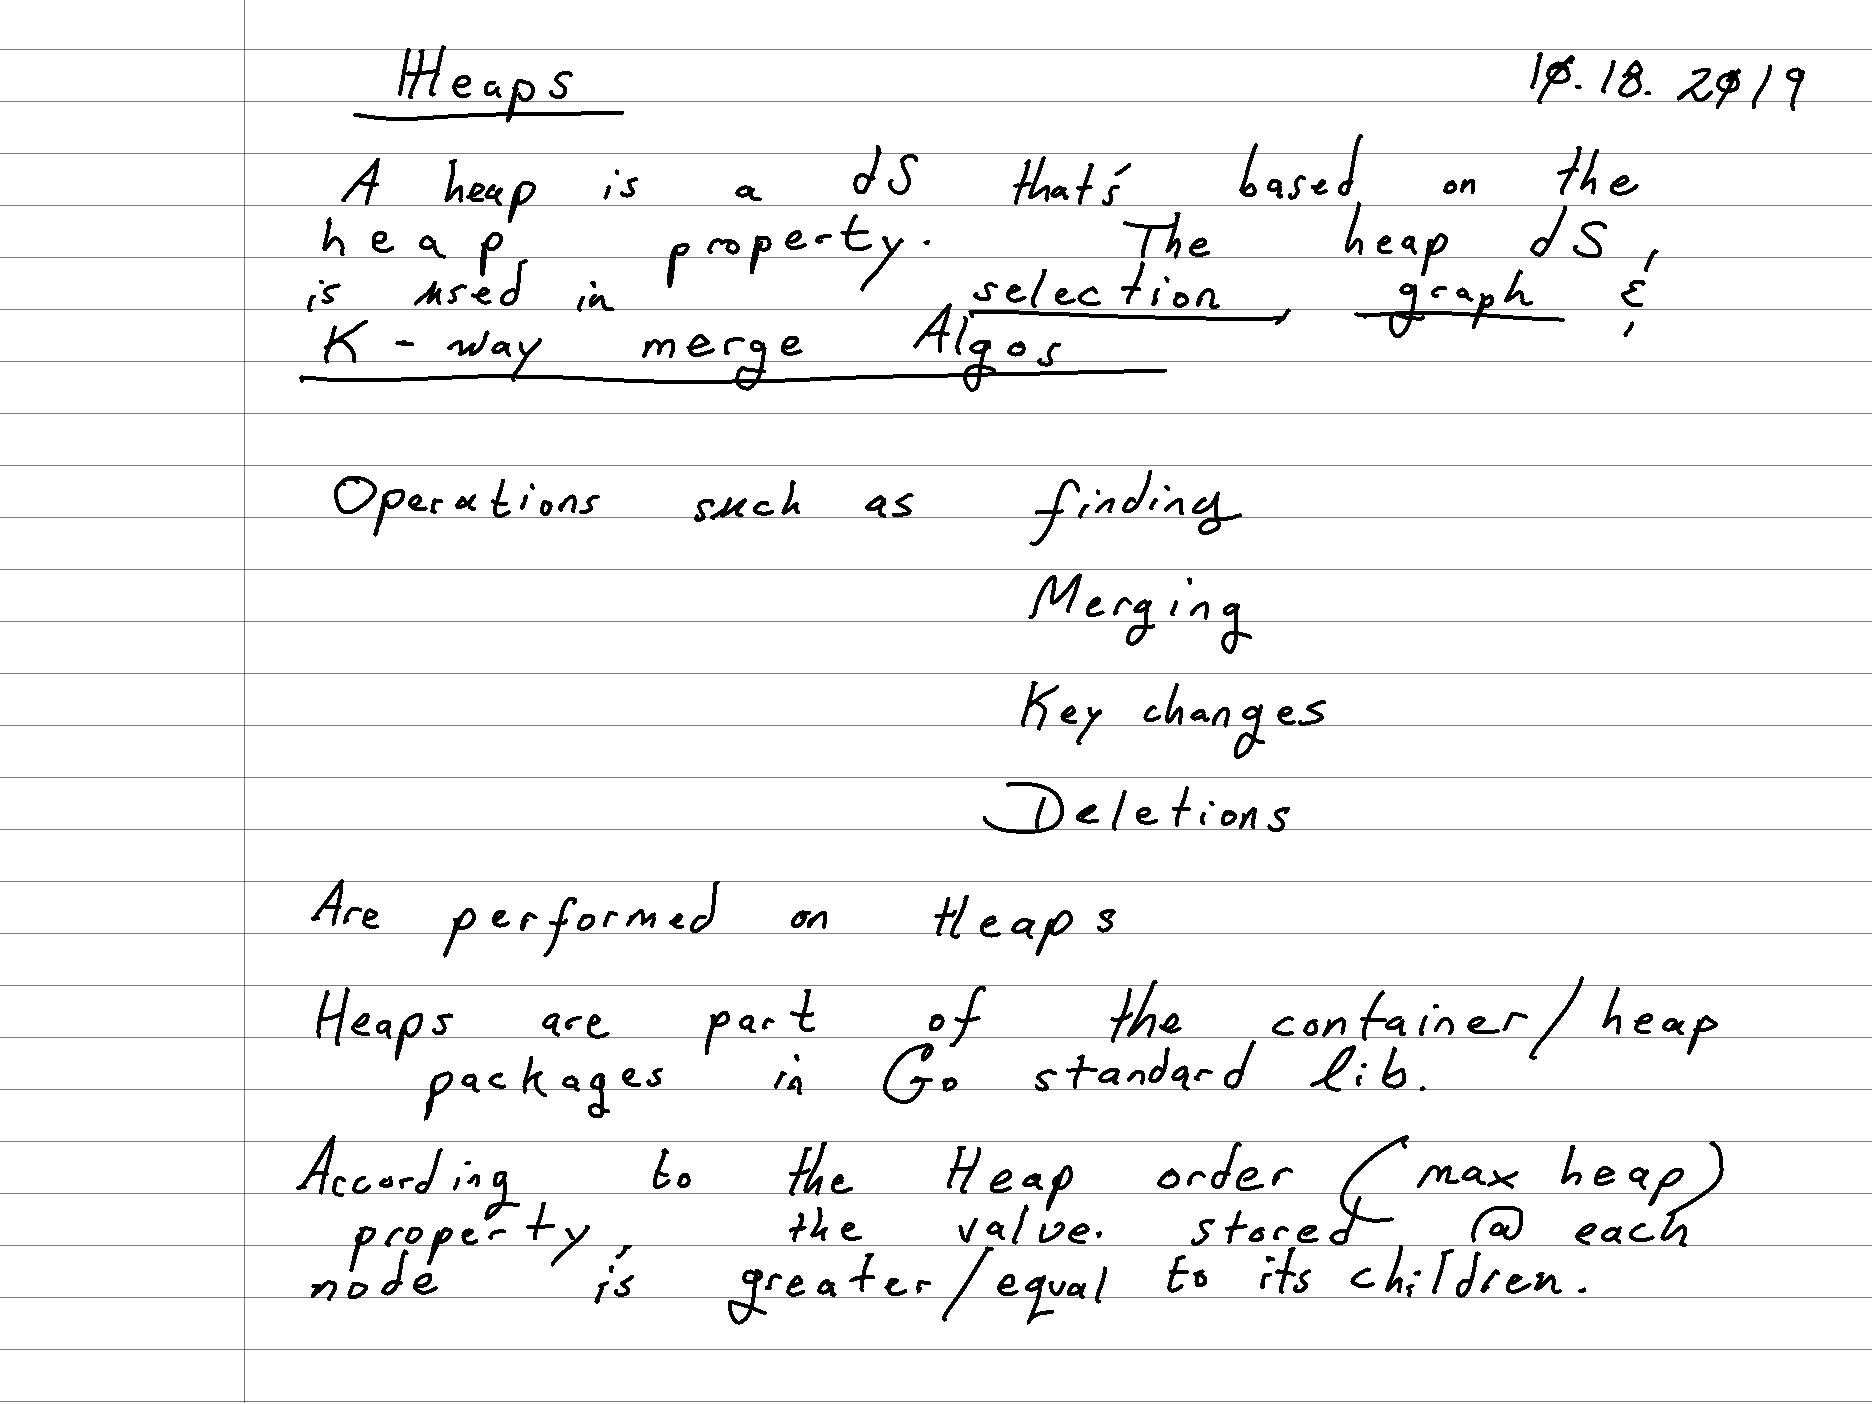 Heaps 10.18.2019
A heap is a dS that's based on the
heap property. The heap dS
is used in selection, graph &
K-way merge Algos
Operations such as finding
Merging
Key changes
Deletions
Are performed on Heaps
Heaps are part of the container/heap
packages in Go standard lib.
According to the Heap order (max heap)
property, the value stored @ each
node is greater/equal to its children.